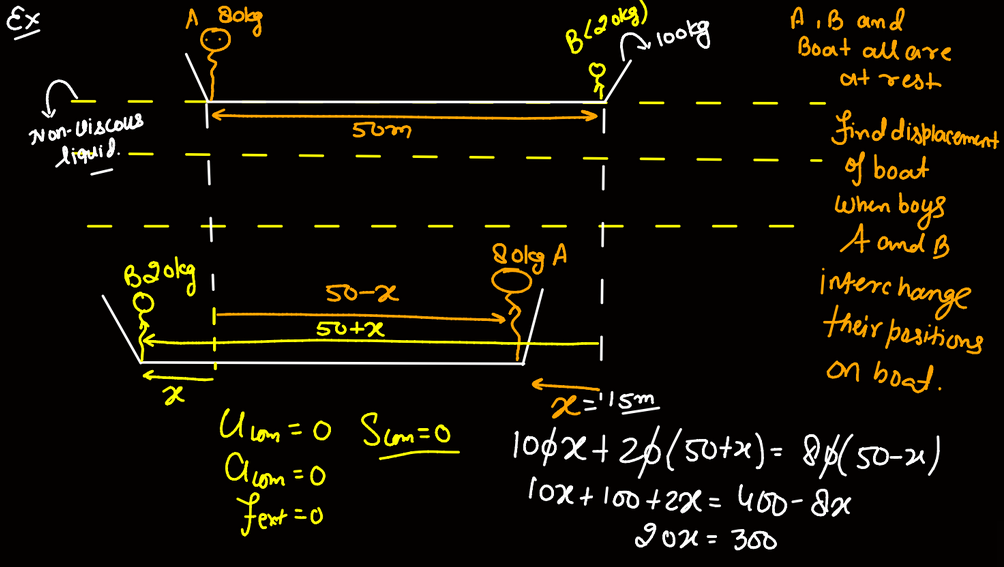 Ex
A 80kg
B(20kg)
100kg
Non-Viscous
liquid.
50m
A, B and
Boat all are
at rest
find displacement
of boat
when boys
A and B
interchange
their positions
on boat.
B20kg
80kg A
50-x
50+x
x
x = 15m
Ucom = 0 Scom = 0
acom = 0
fext = 0
100x + 20(50+x) = 80(50-x)
10x + 100 + 2x = 400 - 8x
20x = 300